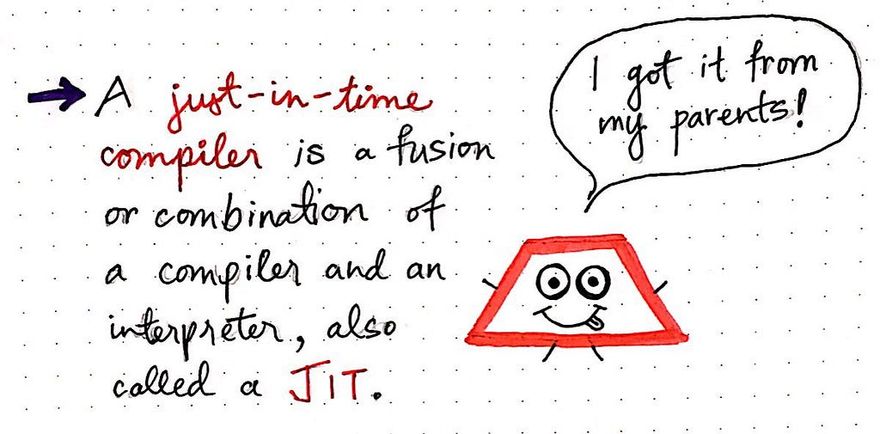 A just-in-time
compiler is a fusion
or combination of
a compiler and an
interpreter, also
called a JIT.
I got it from
my parents!